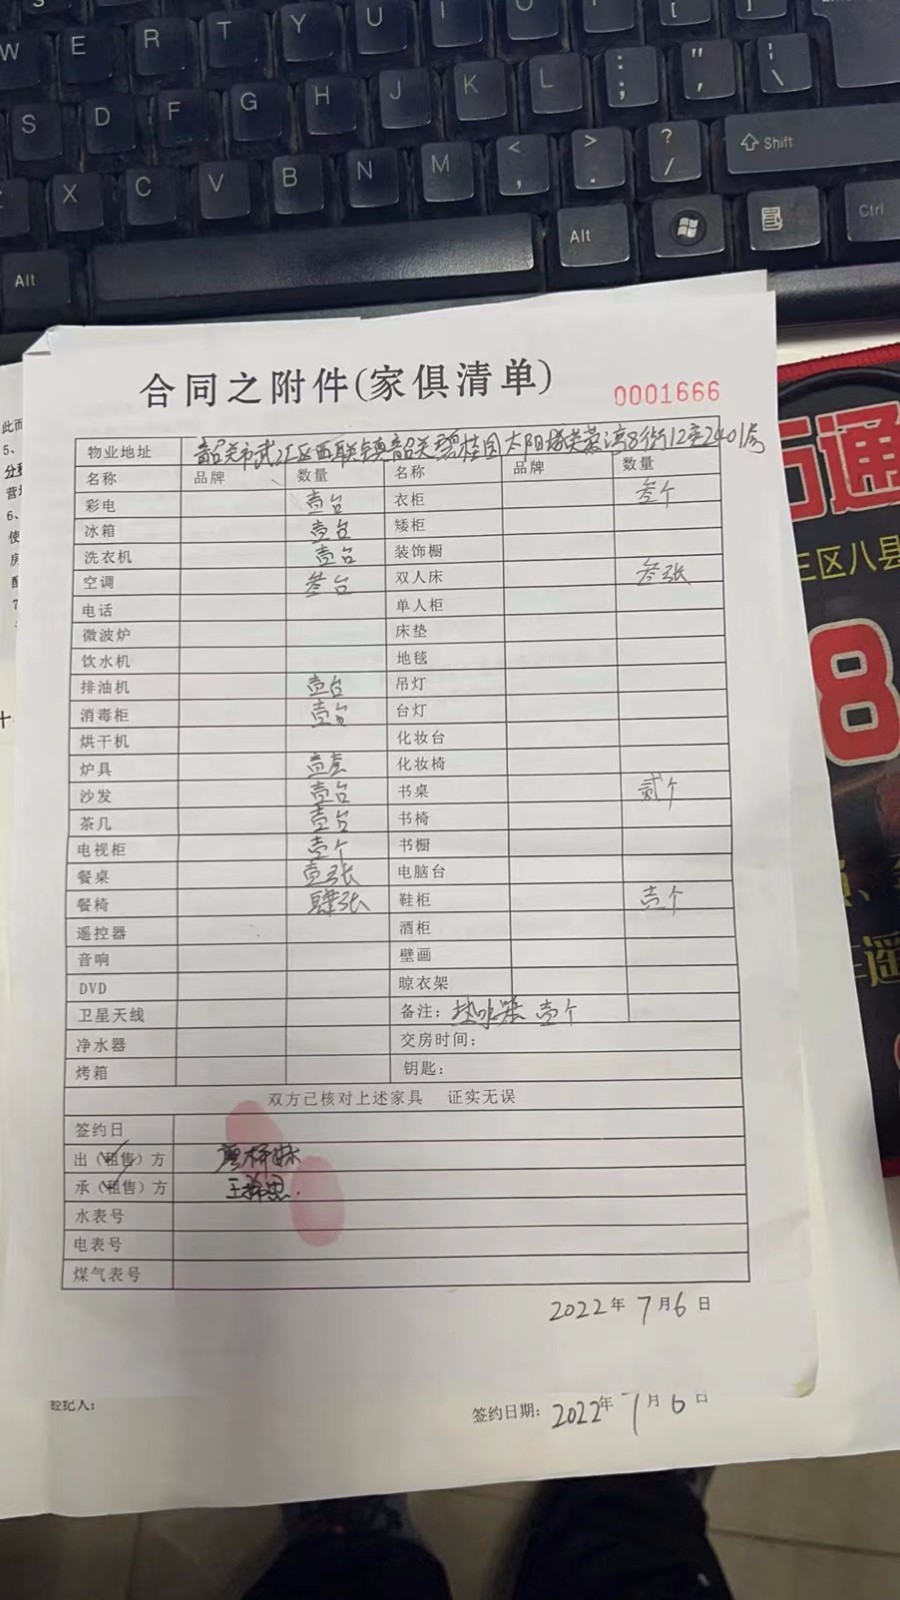 W E R T Y U I O P
S D F G H J K L : ; " ' | \
X C V B N M < , > . ? / Shift
Alt Alt Ctrl
合同之附件(家俱清单) 0001666
物业地址 韶关市武江区西联镇韶关碧桂园太阳城芙蓉湾8街12座2401房
名称 品牌 数量 名称 品牌 数量
彩电 壹台 衣柜 叁个
冰箱 壹台 矮柜
洗衣机 壹台 装饰橱
空调 叁台 双人床 叁张
电话 单人柜
微波炉 床垫
饮水机 地毯
排油机 壹台 吊灯
消毒柜 壹台 台灯
烘干机 化妆台
炉具 壹套 化妆椅
沙发 壹台 书桌 贰个
茶几 壹台 书椅
电视柜 壹个 书橱
餐桌 壹张 电脑台
餐椅 肆张 鞋柜 壹个
遥控器 酒柜
音响 壁画
DVD 晾衣架
卫星天线 备注: 热水器 壹个
净水器 交房时间:
烤箱 钥匙:
双方已核对上述家具 证实无误
签约日
出(租售)方
承(租售)方
水表号
电表号
煤气表号
2022年7月6日
经纪人: 签约日期: 2022年7月6日
此而
5、
分
营
6、
使
房
7
十
通
三区八县
8
遥